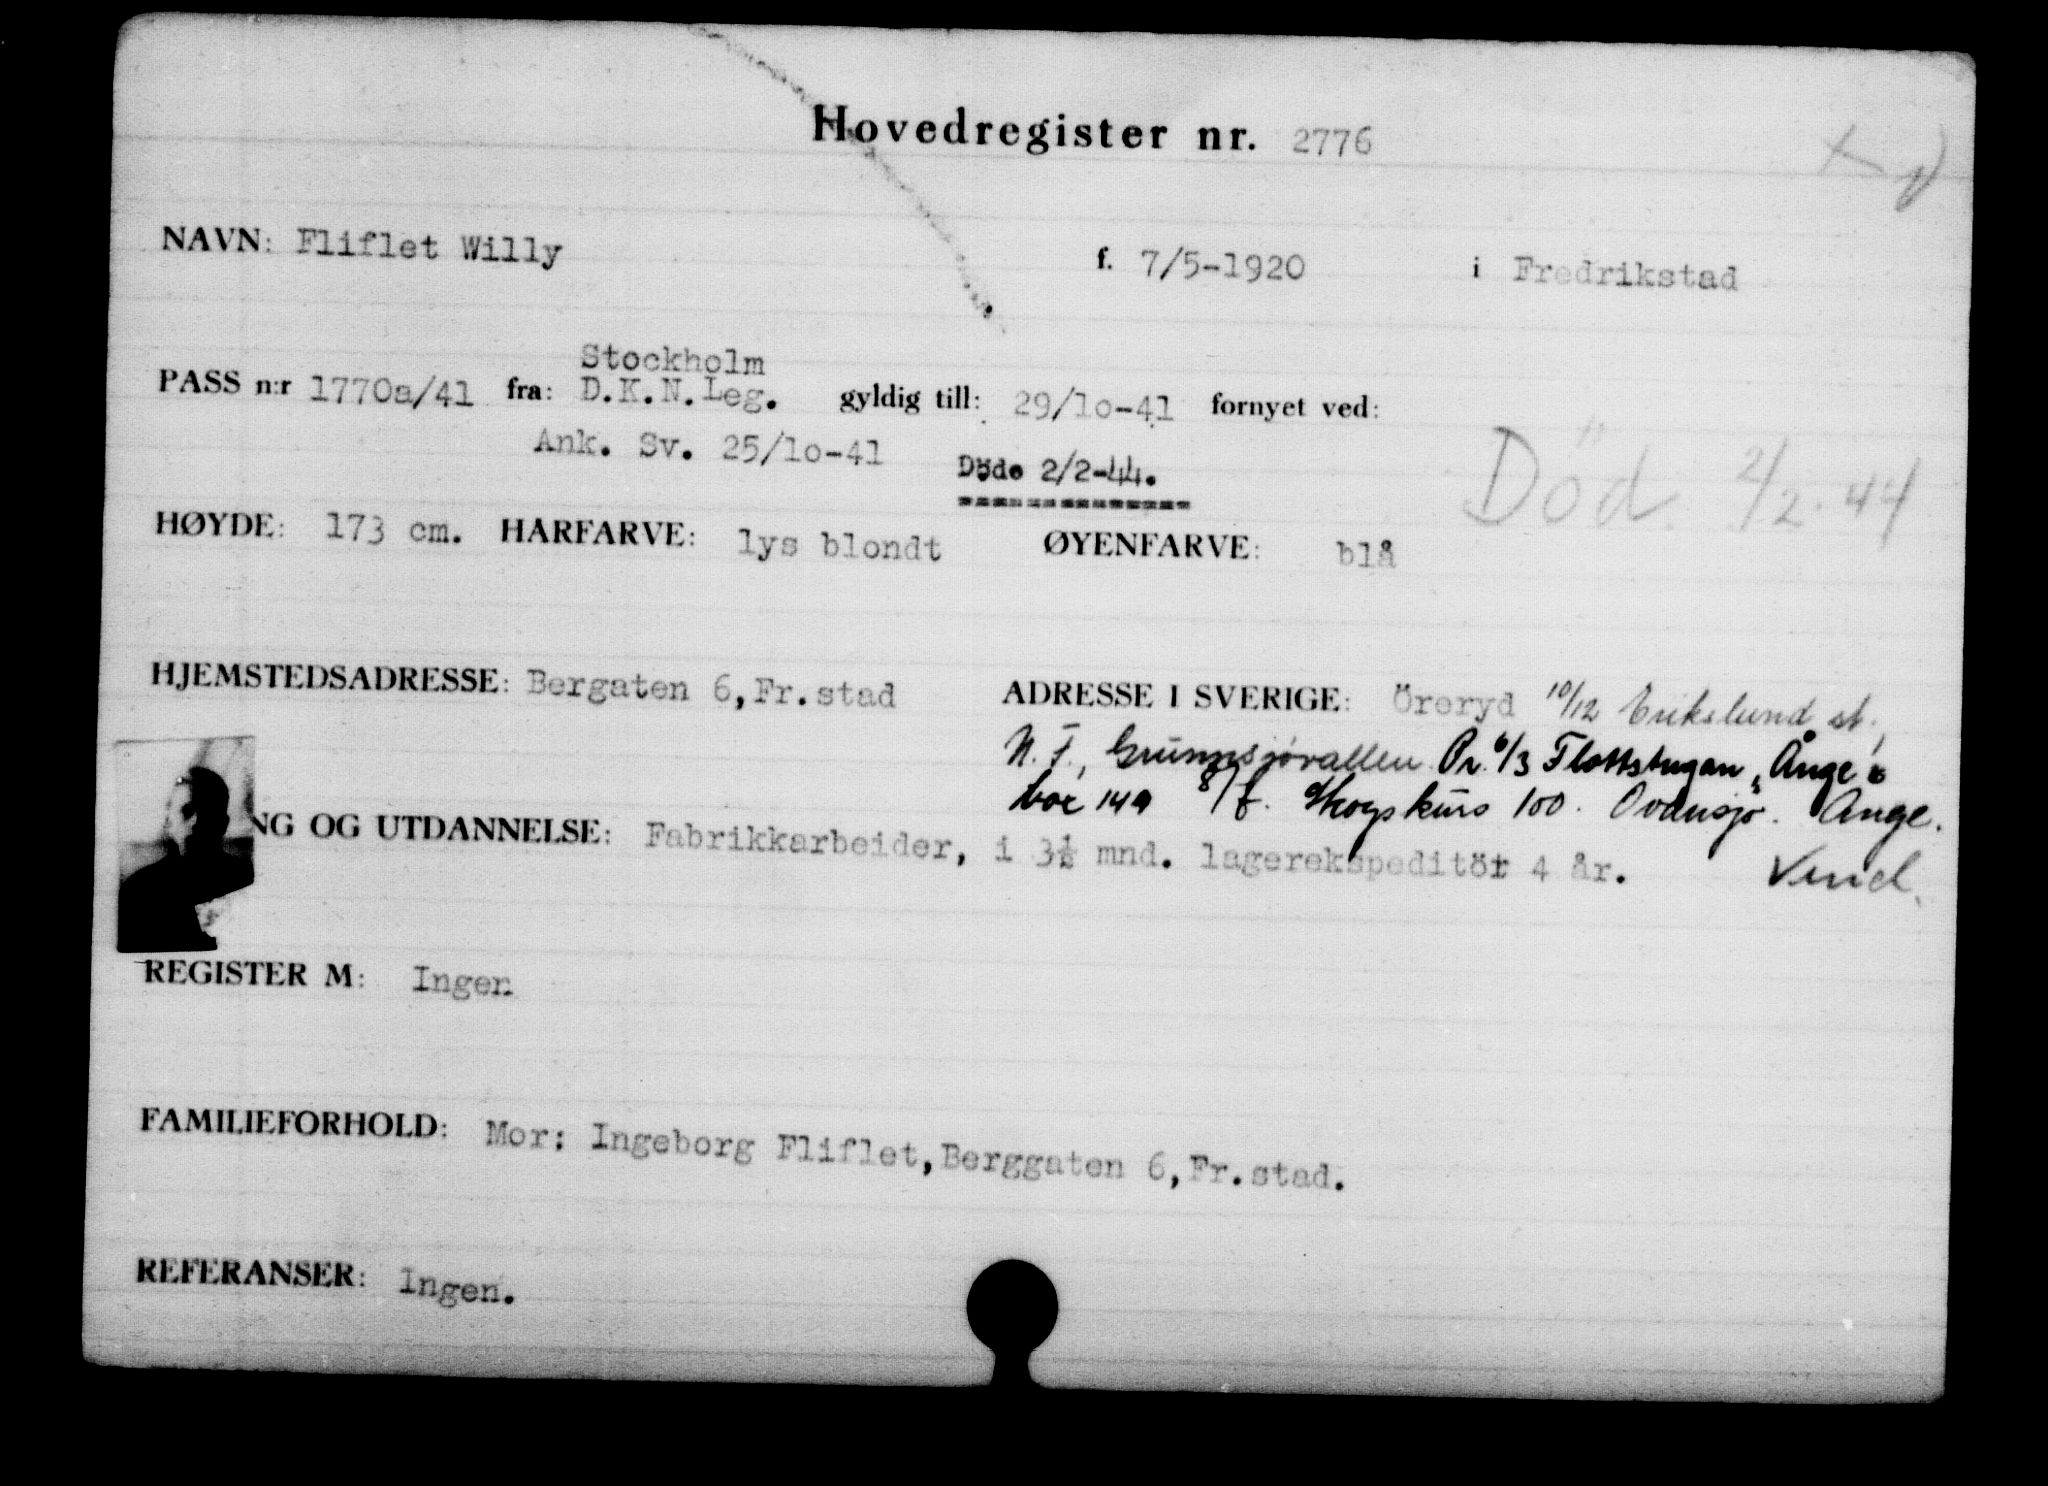 Hovedregister nr. 2776
NAVN: Fliflet Willy f. 7/5-1920 i Fredrikstad
Stockholm
PASS n:r 1770a/41 fra: D.K.N.Leg. gyldig till: 29/10-41 fornyet ved:
Ank. Sv. 25/10-41 Døde 2/2-44. Död 2/2.44
HØYDE: 173 cm. HARFARVE: lys blondt ØYENFARVE: blå
HJEMSTEDSADRESSE: Bergaten 6, Fr.stad ADRESSE I SVERIGE: Öreryd 10/12 Erikslund st.,
N.F., Grunnsjøvallen Pr. 6/3 Flottstugan, Ånge
box 149 8/6. Skogskurs 100. Ovansjø. Ånge.
NG OG UTDANNELSE: Fabrikkarbeider, i 3½ mnd. lagerekspeditör 4 år. Vend.
REGISTER M: Ingen
FAMILIEFORHOLD: Mor: Ingeborg Fliflet, Berggaten 6, Fr.stad.
REFERANSER: Ingen.